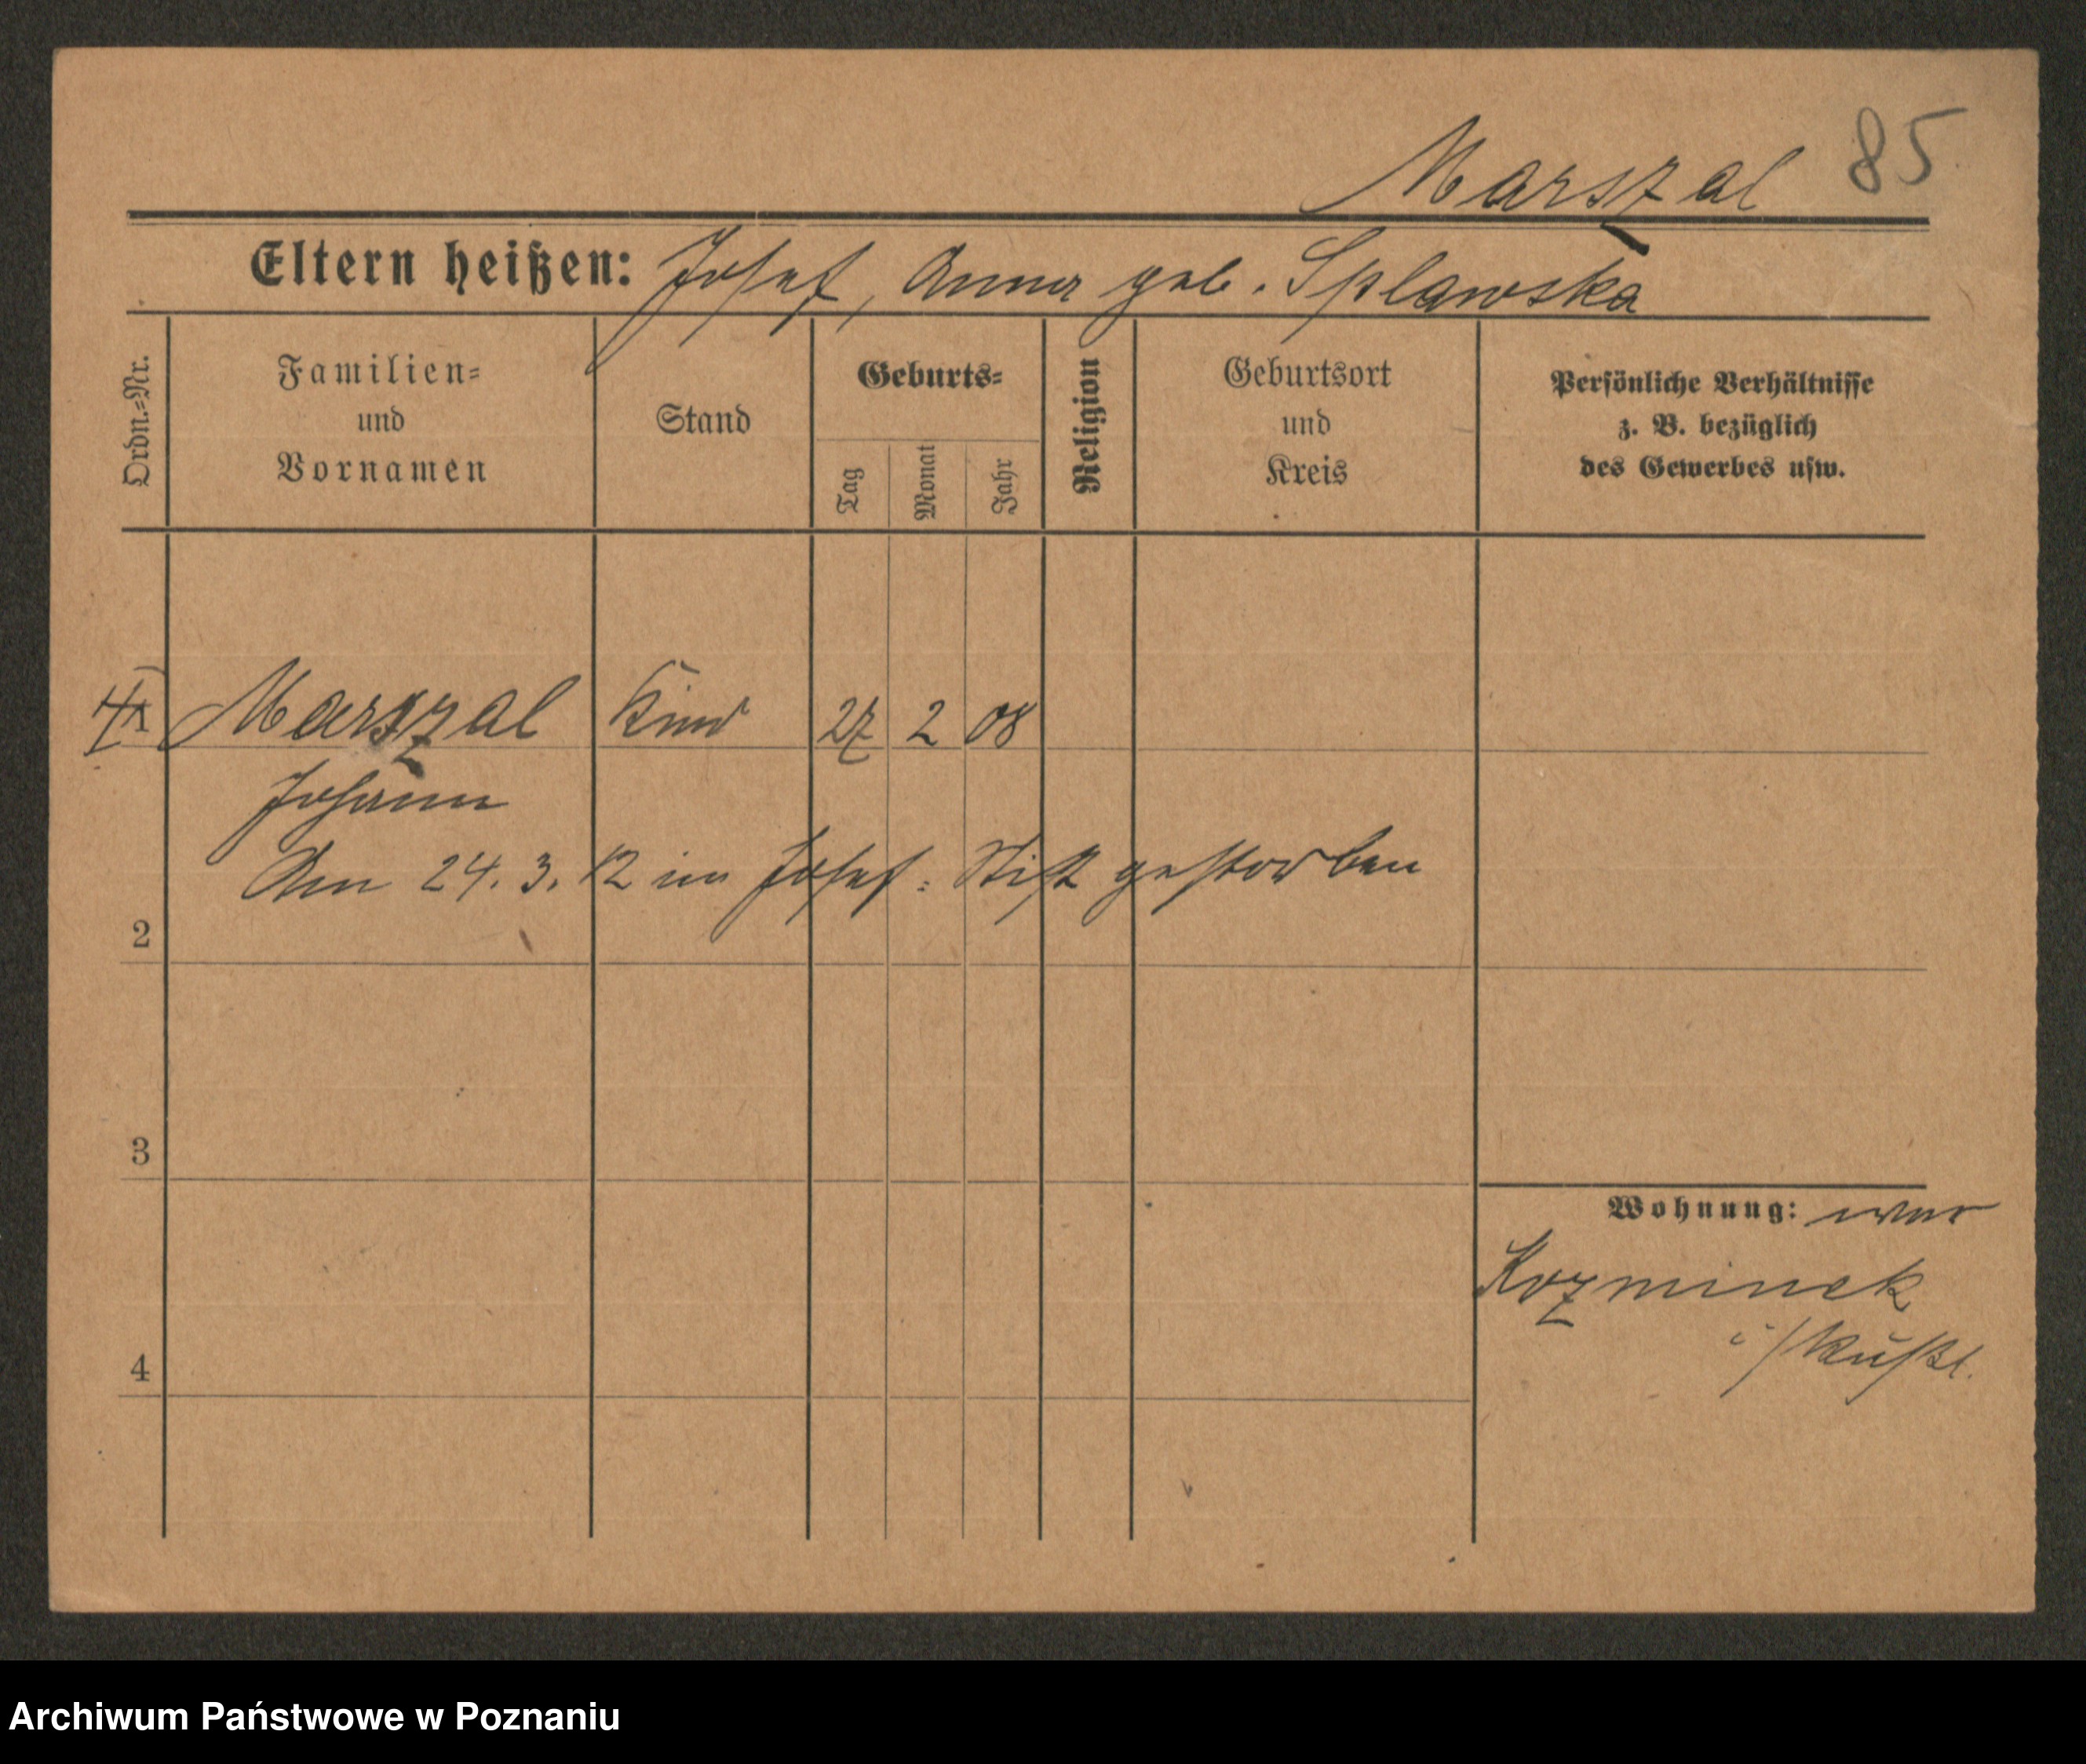 Marszal 85
Eltern heißen: Josef, Anna geb. Splawska
Ordn.-Nr.
Familien-
und
Vornamen
Stand
Geburts-
Tag
Monat
Jahr
Religion
Geburtsort
und
Kreis
Persönliche Verhältnisse
z. B. bezüglich
des Gewerbes usw.
1 Marszal Kind 27 2 08
Johann
Am 24. 3. 12 im Josef-Stift gestorben
2
3
Wohnung: war
Kozminek
i/Rußl.
4
Archiwum Państwowe w Poznaniu